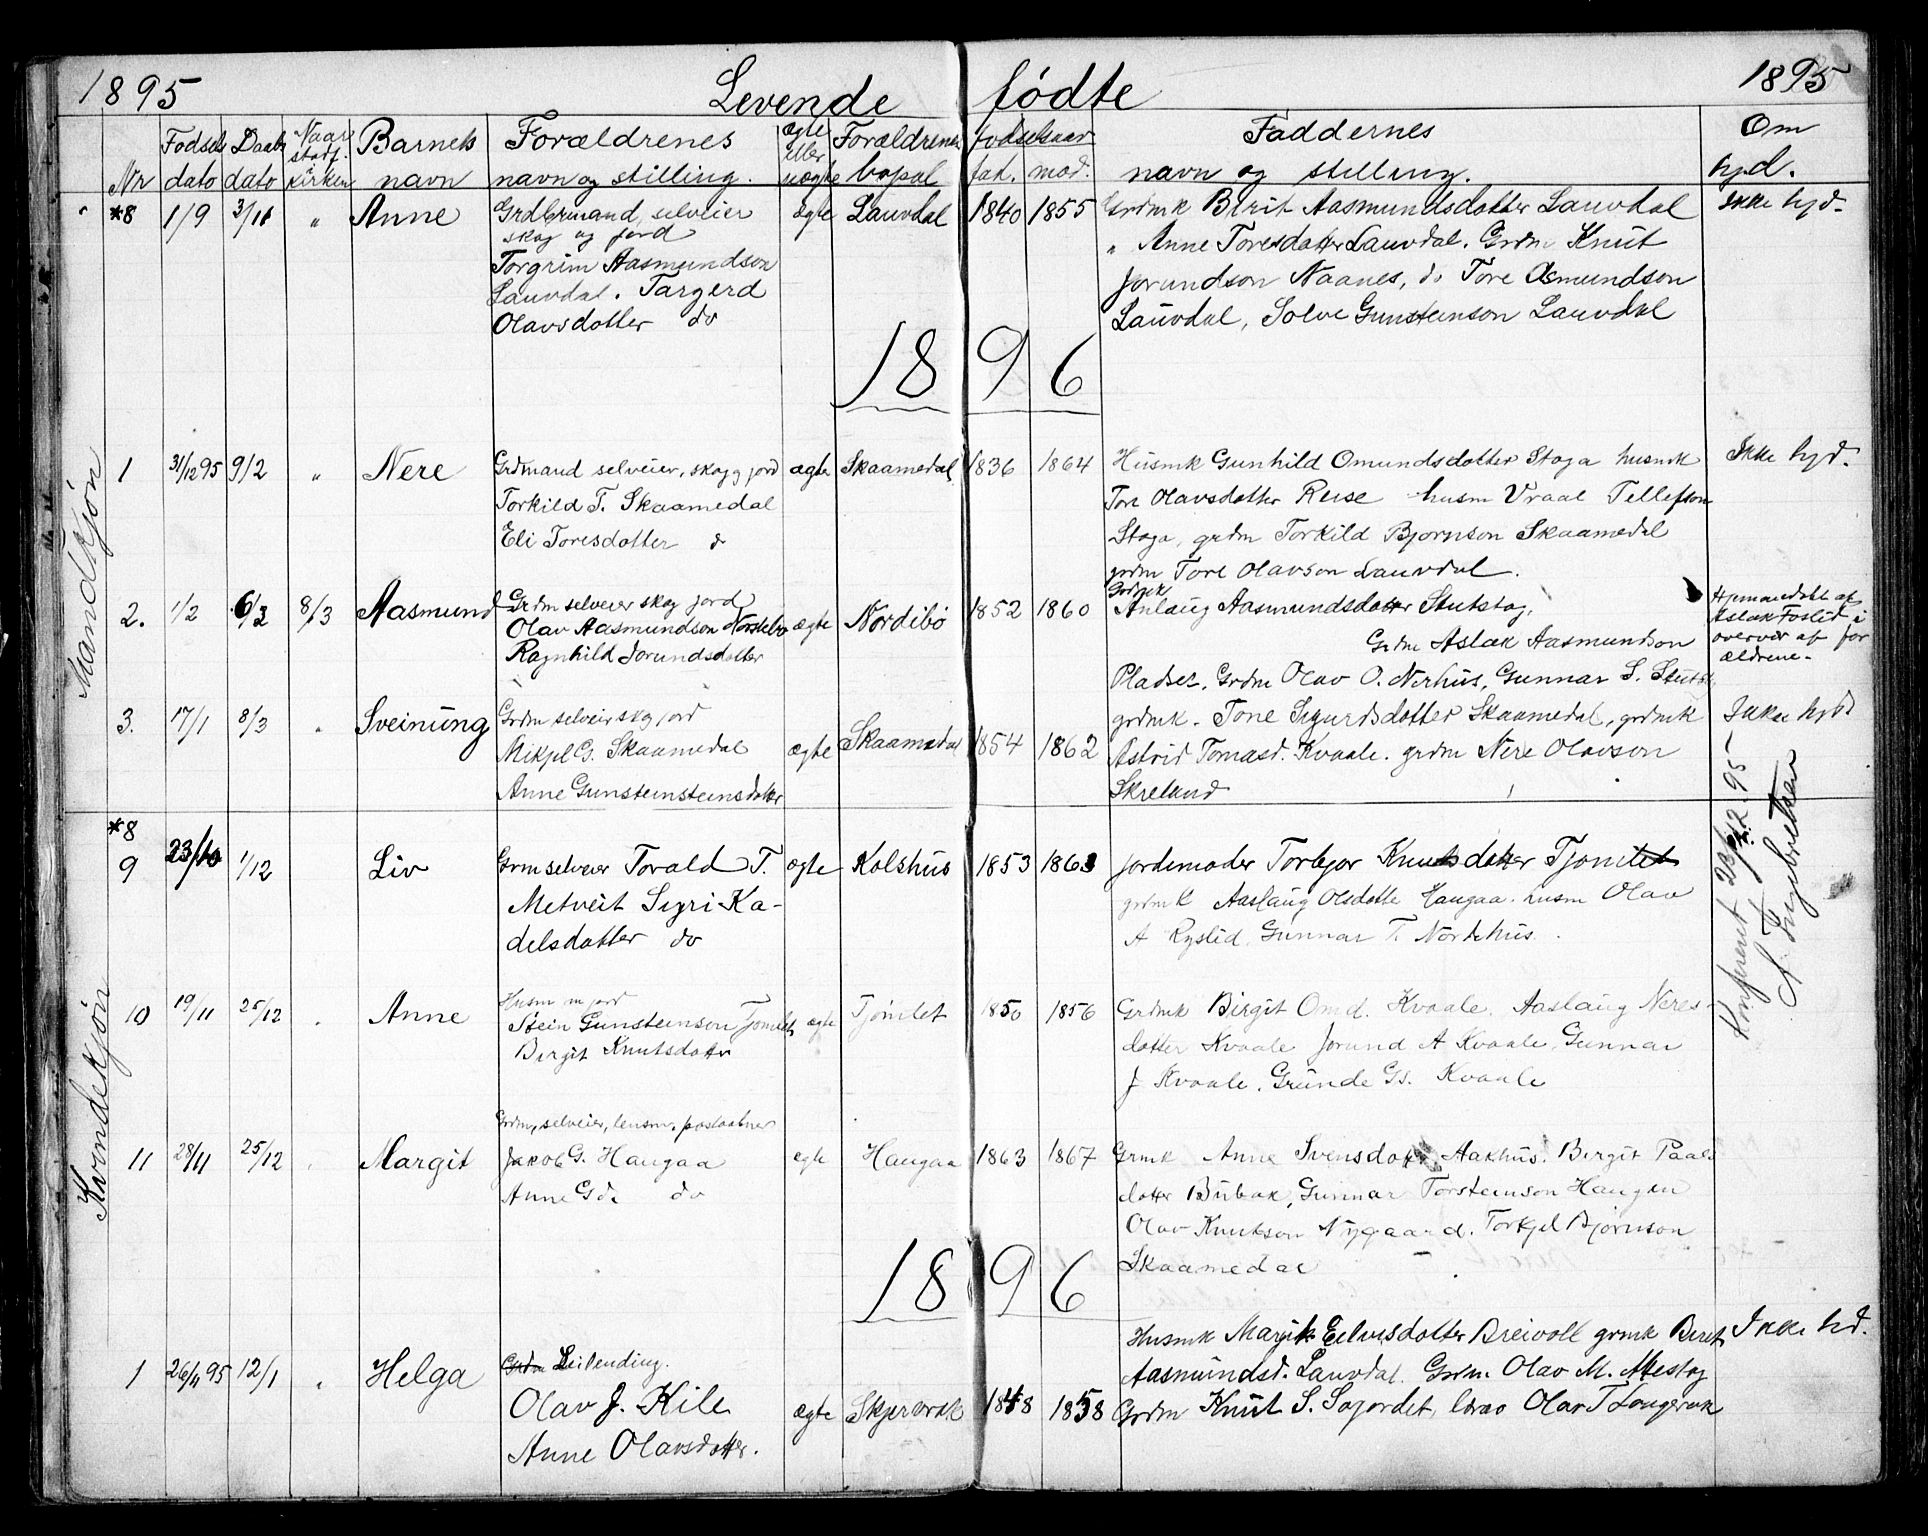 1895 Levende fødte 1895
Nr Fødsels dato Daabs dato Naar stadf. i kirken Barnets navn Forældrenes navn og stilling. ægte eller uægte Forældrenes bopæl fødselsaar fad. mod. Faddernes navn og stilling. Om hjd.
*8 1/9 3/11 " Anne Grdbrmand, selveier ægte Lauvdal 1840 1855 Grdmk Birit Aasmundsdotter Lauvdal Ikke hjd.
skog og jord " Anne Toresdotter Lauvdal. Grdm Knut
Torgrim Aasmundson Jorundson Naanes, do Tore Osmundson
Lauvdal. Targerd Lauvdal, Solve Gunsteinson Lauvdal
Olavsdotter do
1896
Mandkjøn
1 31/12 95 9/2 " Nere Grdmand selveier, skog jord ægte Skaamedal 1836 1864 Husmk Gunhild Omundsdotter Stoga husmk Ikke hjd.
Torkild T. Skaamedal Tore Olavsdotter Reise husm Vraal Tellefson
Eli Toresdotter d Stoga, grdm Torkild Bjornson Skaamedal
grdm Tore Olavson Lauvdal.
2. 1/2 6/3 8/3 Aasmund Grdm selveier skog jord ægte Nordibø 1852 1860 Grdmk Anlaug Aasmundsdotter Stutstog, Hjemmedøbt af
Olav Aasmundson Nordibø Grdm Aslak Aasmundson Aslak Foslid i
Ragnhild Jorundsdotter Pladset. Grdm Olav O. Nerhus, Gunnar S. overvær af for
ældrene.
3. 17/1 8/3 " Sveinung Grdm selveier skog jord grdmk. Tone Sigurdsdotter Skaamedal, grdmk Ikke hjd
Mikjel G. Skaamedal ægte Skaamedal 1854 1862 Astrid Tomasd. Kvaale. grdm Nere Olavson
Anne Gunsteinsteinsdotter Skreland
Kvindekjøn
*8
9 23/10 1/12 Liv Grm selveier Torald T. ægte Kolshus 1853 1863 jordemoder Torbjor Knutsdotter Tjomlet
Metveit Sigri Ka- grdmk Aaslaug Olsdotte Haugaa. husm Olav
delsdotter do A Ryslid, Gunnar T. Nordhus.
Konfereret 28/12. 95
A. Ingebretsen
10 19/11 25/12 " Anne Husm m jord
Stein Gunsteinson Tjomlet ægte Tjomlet 1850 1856 Grdmk Birgit Omd. Kvaale. Aaslaug Neres-
Birgit Knutsdotter dotter Kvaale Jorund A Kvaale, Gunnar
J Kvaale, Grunde Gs. Kvaale
11 28/11 25/12 " Margit Grdm, selveier, lensm. postaabner
Jakob G. Haugaa ægte Haugaa 1863 1867 Grmk Anne Svensdotter Aakhus. Birgit Paals
Anne G d. do dotter Bubak, Gunnar Torsteinson Haugen
Olav Knutson Nygaard. Torkjel Bjørnson
Skaamedal
1896
1 26/11 95 12/1 " Helga Grdm Leilending. Husmk Margit Eilevsdotter Breivoll grmk Berit Ikke hd.
Olav J. Kile ægte Skjervrak 1848 1858 Aasmundsd. Lauvdal. Grdm. Olav M. Mestog
Anne Olavsdotter. Grdm Knut S. Sojordet, lærer Olav T Longerak